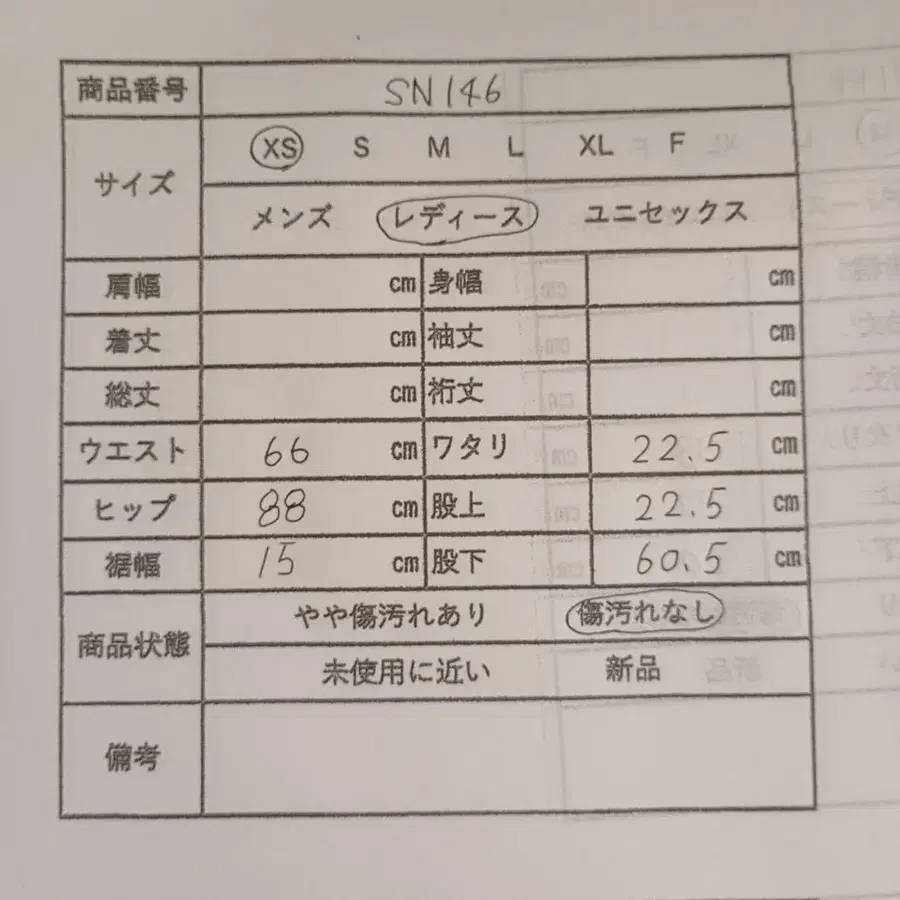 商品番号 SN146
サイズ XS S M L XL F
メンズ レディース ユニセックス
肩幅 cm 身幅 cm
着丈 cm 袖丈 cm
総丈 cm 裄丈 cm
ウエスト 66 cm ワタリ 22.5 cm
ヒップ 88 cm 股上 22.5 cm
裾幅 15 cm 股下 60.5 cm
商品状態 やや傷汚れあり 傷汚れなし
未使用に近い 新品
備考